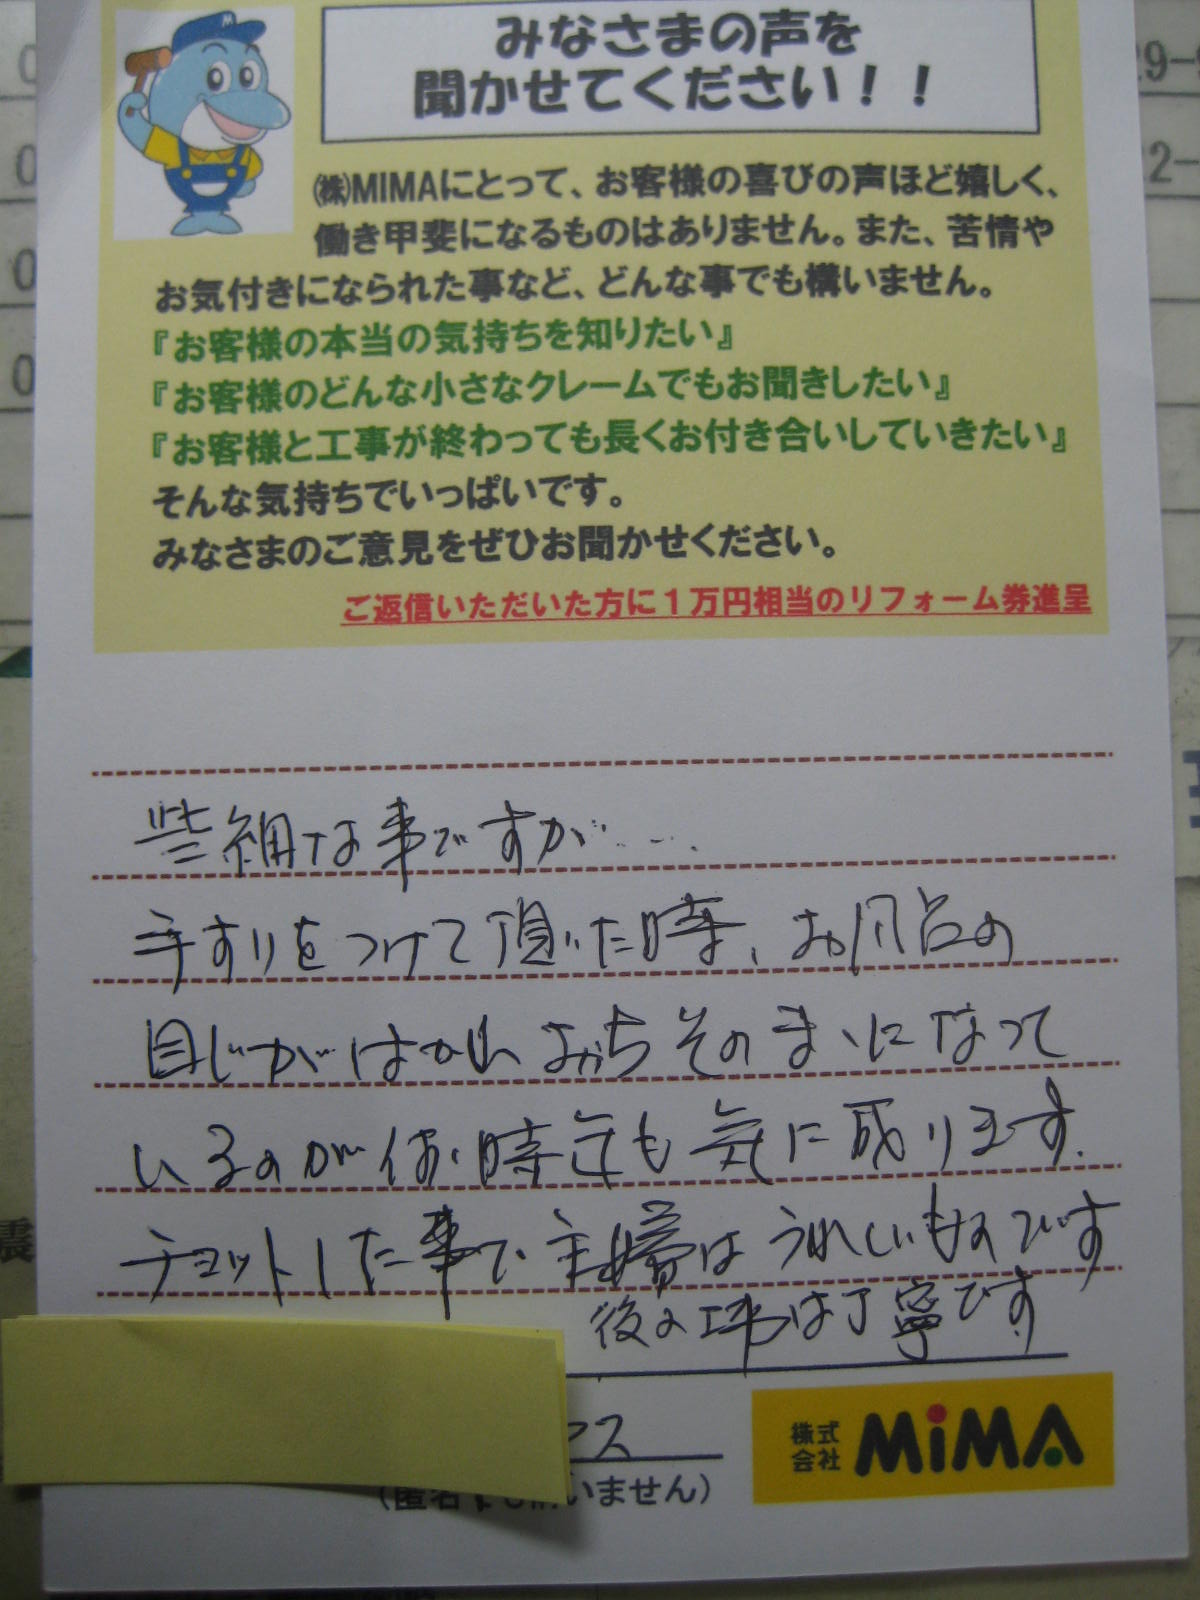 みなさまの声を
聞かせてください！！
㈱MIMAにとって、お客様の喜びの声ほど嬉しく、
働き甲斐になるものはありません。また、苦情や
お気付きになられた事など、どんな事でも構いません。
『お客様の本当の気持ちを知りたい』
『お客様のどんな小さなクレームでもお聞きしたい』
『お客様と工事が終わっても長くお付き合いしていきたい』
そんな気持ちでいっぱいです。
みなさまのご意見をぜひお聞かせください。
ご返信いただいた方に１万円相当のリフォーム券進呈
些細な事ですが……
手すりをつけて頂いた時、お風呂の
目じがはがれおちそのまゝになって
いるのが何時迄も気に成ります.
チョットした事で主婦はうれしいものです
後の工事は丁寧です.
マス
(匿名でも構いません)
株式会社 MiMA
29-
2-
震